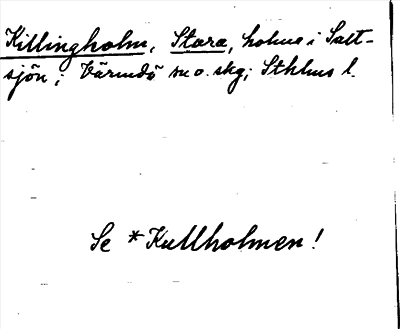 Killingholm, Stora, holme i Salt-
sjön; Värmdö sn o. skg; Sthlms l.
Se *Kullholmen!